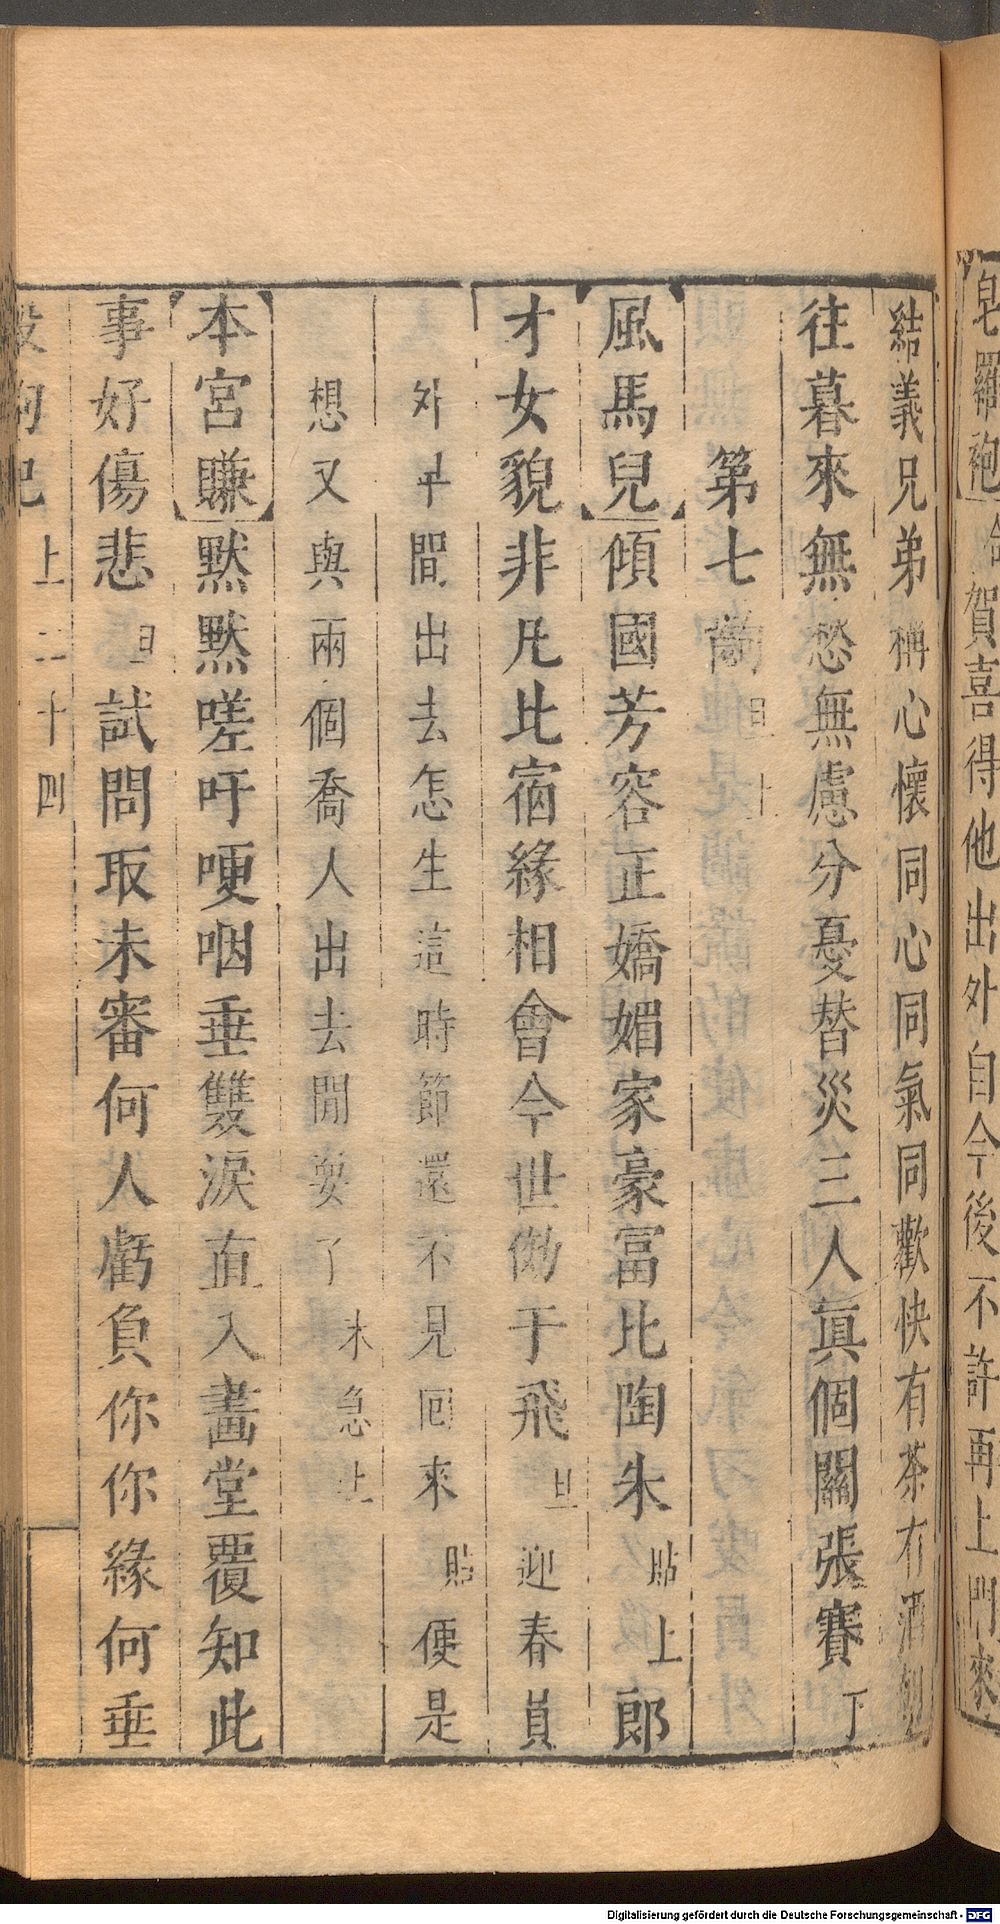 皂羅袍 賀喜得他出外自今後不許再上門來
結義兄弟稱心懷同心同氣同歡快有茶有酒
往暮來無愁無慮分憂替災三人眞個關張賽 下
第七齣 旦上
風馬兒 傾國芳容正嬌媚家豪冨比陶朱 貼上 郎
才女貌非凡比宿緣相會今世効于飛 旦 迎春員
外平間出去怎生這時節還不見回來 貼 便是
想又與兩個喬人出去閒耍了 末急上
本宮賺 黙黙嗟吁哽咽垂雙淚直入畫堂覆知此
事好傷悲 旦 試問取未審何人虧負你你緣何垂
殺狗記 上 二十四
Digitalisierung gefördert durch die Deutsche Forschungsgemeinschaft - DFG